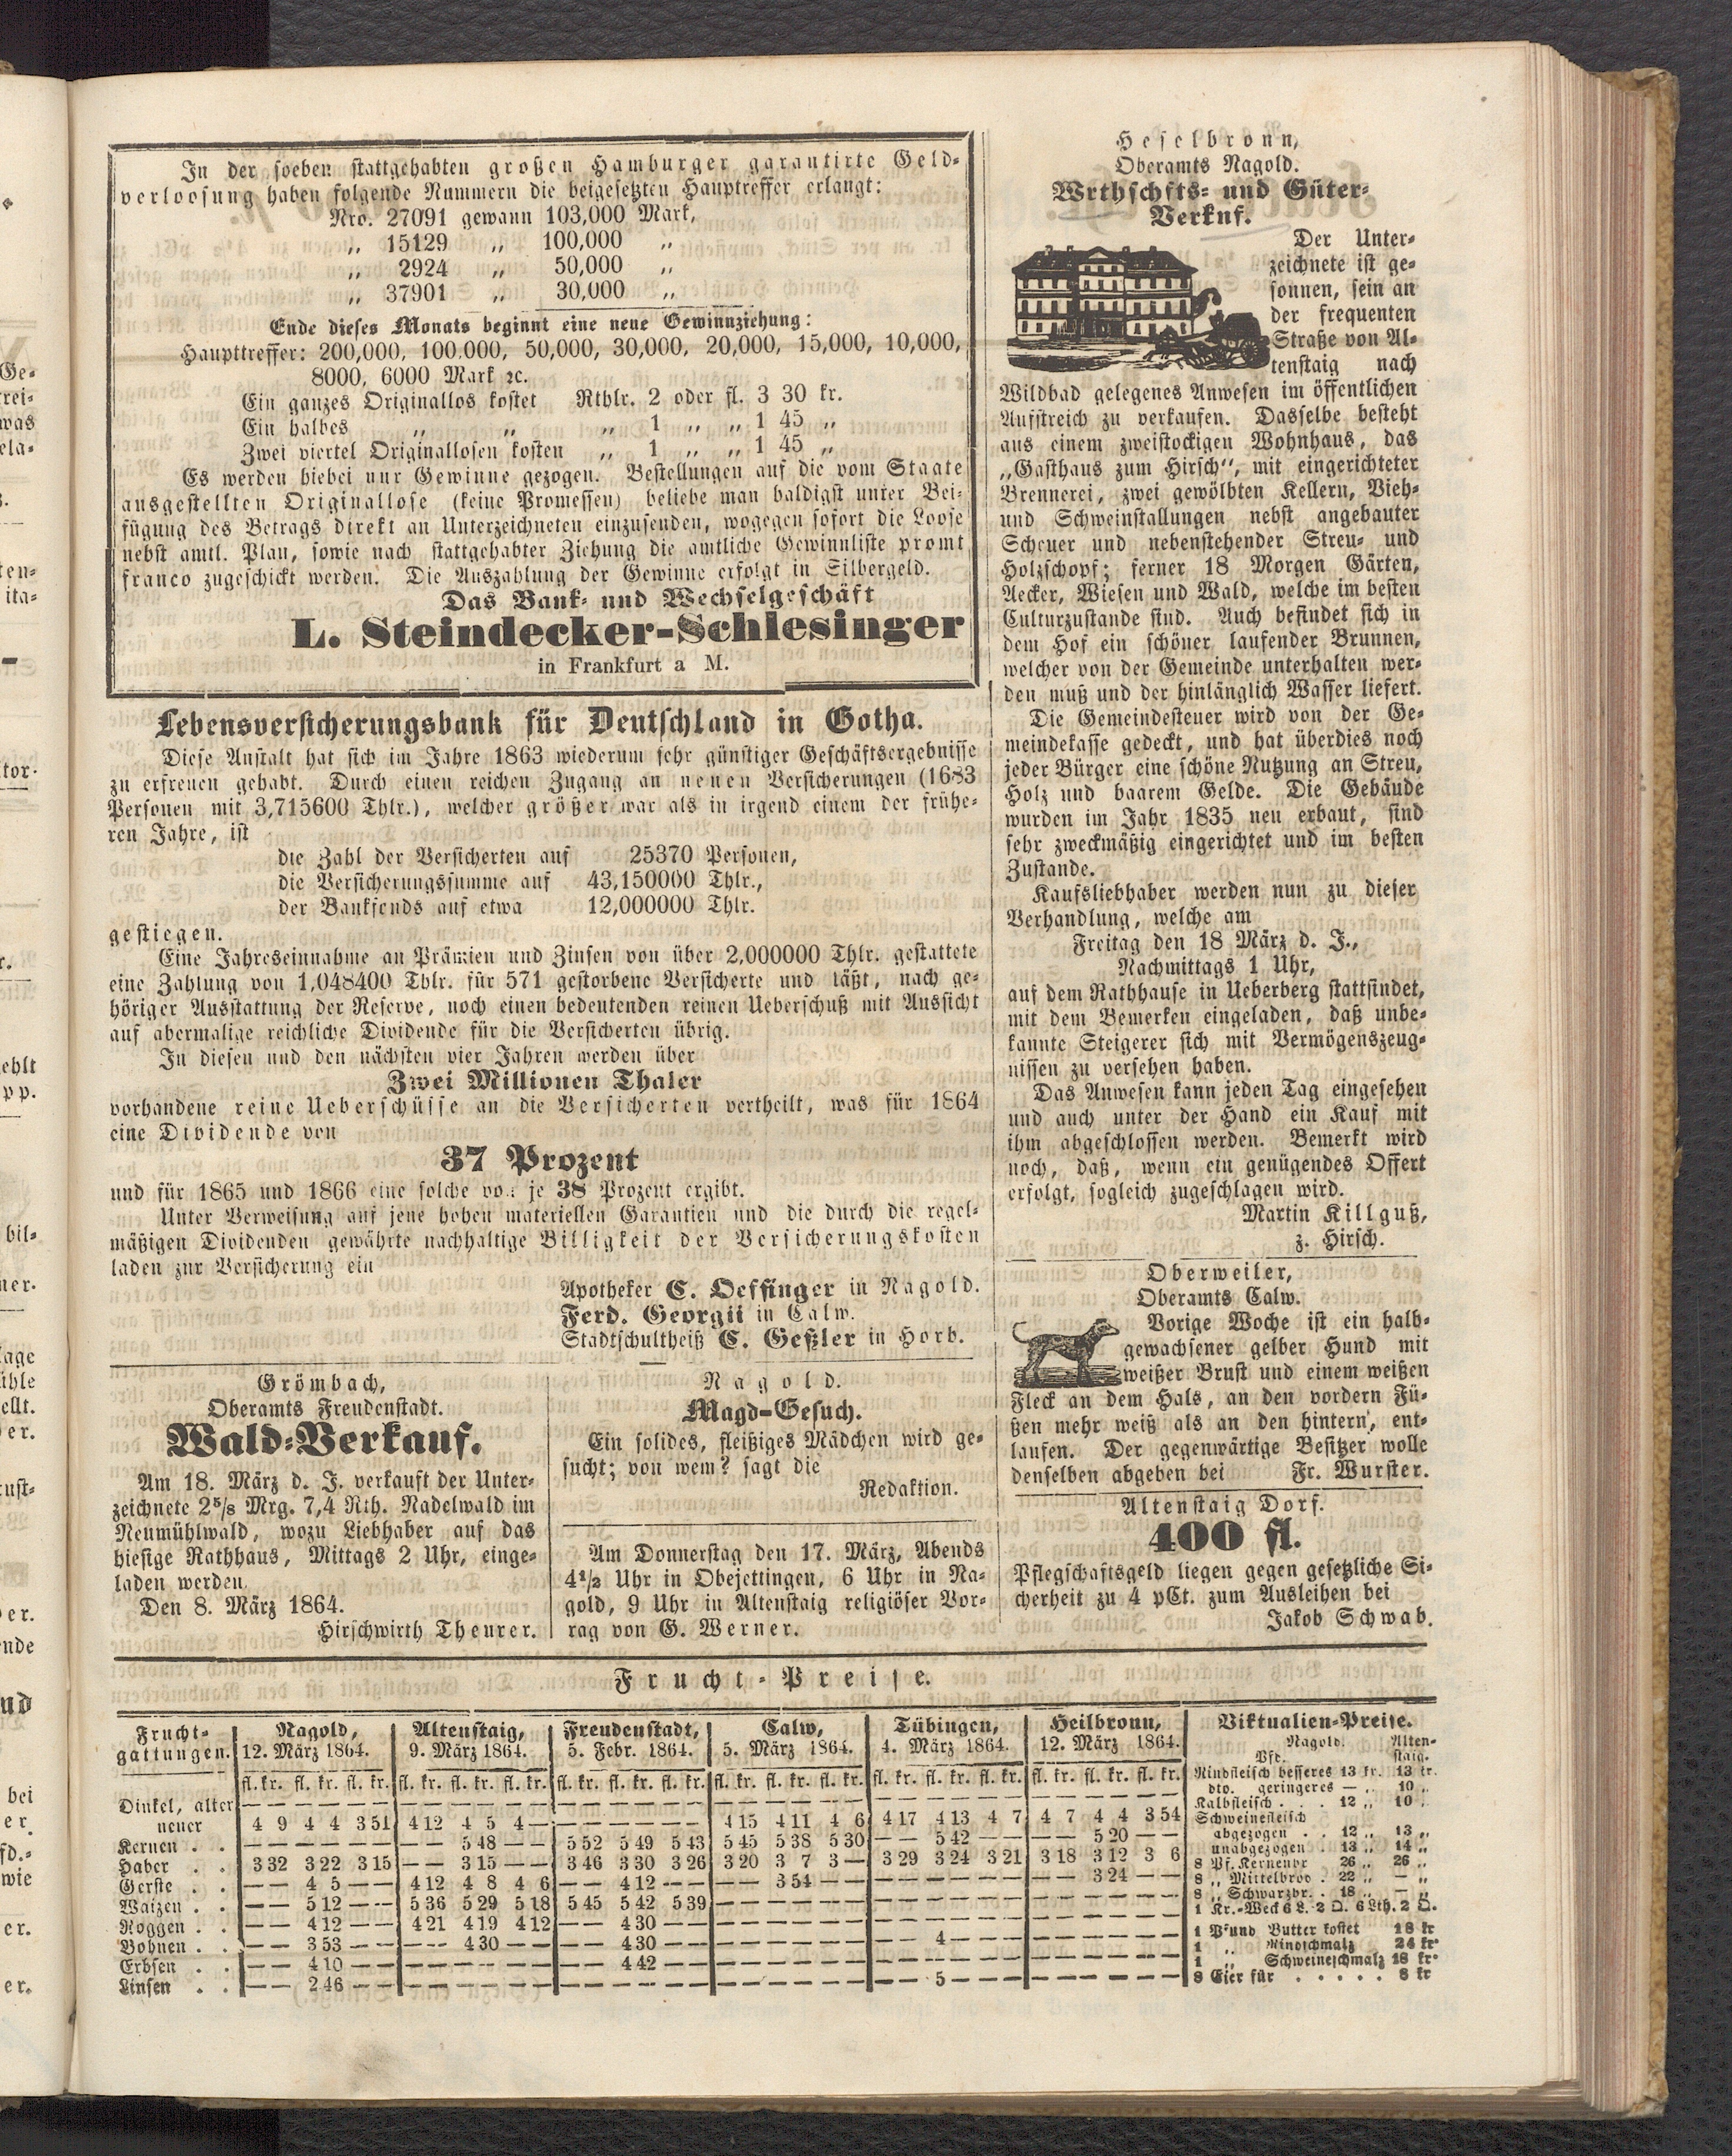 In der soeben stattgehabten großen Hamburger garantirte Geld-
verloosung haben folgende Nummern die beigesetzten Hauptreffer erlangt:
Nro. 27091 gewann 103,000 Mark,
„ 15129 „ 100,000 „
„ 2924 „ 50,000 „
„ 37901 „ 30,000 „
Ende dieses Monats beginnt eine neue Gewinnziehung:
Haupttreffer: 200,000, 100,000, 50,000, 30,000, 20,000, 15,000, 10,000,
8000, 6000 Mark ꝛc.
Ein ganzes Originallos kostet Rthlr. 2 oder fl. 3 30 kr.
Ein halbes „ „ „ 1 „ „ 1 45 „
Zwei viertel Originallosen kosten „ 1 „ „ 1 45 „
Es werden hiebei nur Gewinne gezogen. Bestellungen auf die vom Staate
ausgestellten Originallose (keine Promessen) beliebe man baldigst unter Bei-
fügung des Betrags direkt an Unterzeichneten einzusenden, wogegen sofort die Loose
nebst amtl. Plan, sowie nach stattgehabter Ziehung die amtliche Gewinnliste promt
franco zugeschickt werden. Die Auszahlung der Gewinne erfolgt in Silbergeld.
Das Bank- und Wechselgeschäft
L. Steindecker-Schlesinger
in Frankfurt a M.
Lebensversicherungsbank für Deutschland in Gotha.
Diese Anstalt hat sich im Jahre 1863 wiederum sehr günstiger Geschäftsergebnisse
zu erfreuen gehabt. Durch einen reichen Zugang an neuen Versicherungen (1683
Personen mit 3,715600 Thlr.), welcher größer war als in irgend einem der frühe-
ren Jahre, ist
die Zahl der Versicherten auf 25370 Personen,
die Versicherungssumme auf 43,150000 Thlr.,
der Bankfonds auf etwa 12,000000 Thlr.
gestiegen.
Eine Jahreseinnahme an Prämien und Zinsen von über 2,000000 Thlr. gestattete
eine Zahlung von 1,048400 Thlr. für 571 gestorbene Versicherte und läßt, nach ge-
höriger Ausstattung der Reserve, noch einen bedeutenden reinen Ueberschuß mit Aussicht
auf abermalige reichliche Dividende für die Versicherten übrig.
In diesen und den nächsten vier Jahren werden über
Zwei Millionen Thaler
vorhandene reine Ueberschüsse an die Versicherten vertheilt, was für 1864
eine Dividende von
37 Prozent
und für 1865 und 1866 eine solche von je 38 Prozent ergibt.
Unter Verweisung auf jene hohen materiellen Garantien und die durch die regel-
mäßigen Dividenden gewährte nachhaltige Billigkeit der Versicherungskosten
laden zur Versicherung ein
Apotheker C. Oeffinger in Nagold.
Ferd. Georgii in Calw.
Stadtschultheiß C. Geßler in Horb.
Grömbach,
Oberamts Freudenstadt.
Wald-Verkauf.
Am 18. März d. J. verkauft der Unter-
zeichnete 2⅝ Mrg. 7,4 Rth. Nadelwald im
Neumühlwald, wozu Liebhaber auf das
hiesige Rathhaus, Mittags 2 Uhr, einge-
laden werden.
Den 8. März 1864.
Hirschwirth Theurer.
Nagold.
Magd-Gesuch.
Ein solides, fleißiges Mädchen wird ge-
sucht; von wem? sagt die
Redaktion.
Am Donnerstag den 17. März, Abends
4½ Uhr in Obejettingen, 6 Uhr in Na-
gold, 9 Uhr in Altenstaig religiöser Vor-
rag von G. Werner.
Heselbronn,
Oberamts Nagold.
Wrthschfts- und Güter-
Verknf.
Der Unter-
zeichnete ist ge-
sonnen, sein an
der frequenten
Straße von Al-
tenstaig nach
Wildbad gelegenes Anwesen im öffentlichen
Aufstreich zu verkaufen. Dasselbe besteht
aus einem zweistockigen Wohnhaus, das
„Gasthaus zum Hirsch“, mit eingerichteter
Brennerei, zwei gewölbten Kellern, Vieh-
und Schweinstallungen nebst angebauter
Scheuer und nebenstehender Streu- und
Holzschopf; ferner 18 Morgen Gärten,
Aecker, Wiesen und Wald, welche im besten
Culturzustande sind. Auch befindet sich in
dem Hof ein schöner laufender Brunnen,
welcher von der Gemeinde unterhalten wer-
den muß und der hinlänglich Wasser liefert.
Die Gemeindesteuer wird von der Ge-
meindekasse gedeckt, und hat überdies noch
jeder Bürger eine schöne Nutzung an Streu,
Holz und baarem Gelde. Die Gebäude
wurden im Jahr 1835 neu erbaut, sind
sehr zweckmäßig eingerichtet und im besten
Zustande.
Kaufsliebhaber werden nun zu dieser
Verhandlung, welche am
Freitag den 18 März d. J.,
Nachmittags 1 Uhr,
auf dem Rathhause in Ueberberg stattfindet,
mit dem Bemerken eingeladen, daß unbe-
kannte Steigerer sich mit Vermögenszeug-
nissen zu versehen haben.
Das Anwesen kann jeden Tag eingesehen
und auch unter der Hand ein Kauf mit
ihm abgeschlossen werden. Bemerkt wird
noch, daß, wenn ein genügendes Offert
erfolgt, sogleich zugeschlagen wird.
Martin Killguß,
z. Hirsch.
Oberweiler,
Oberamts Calw.
Vorige Woche ist ein halb-
gewachsener gelber Hund mit
weißer Brust und einem weißen
Fleck an dem Hals, an den vordern Fü-
ßen mehr weiß als an den hintern, ent-
laufen. Der gegenwärtige Besitzer wolle
denselben abgeben bei Fr. Wurster.
Altenstaig Dorf.
400 fl.
Pflegschaftsgeld liegen gegen gesetzliche Si-
cherheit zu 4 pCt. zum Ausleihen bei
Jakob Schwab.
Frucht-Preise.
Frucht-gattungen. Nagold, 12. März 1864. Altenstaig, 9. März 1864. Freudenstadt, 5. Febr. 1864. Calw, 5. März 1864. Tübingen, 4. März 1864. Heilbronn, 12. März 1864.
fl. kr. fl. kr. fl. kr. fl. kr. fl. kr. fl. kr. fl. kr. fl. kr. fl. kr. fl. kr. fl. kr. fl. kr. fl. kr. fl. kr. fl. kr. fl. kr. fl. kr. fl. kr.
Dinkel, alter — — — — — — — — — — — — — — — — — — — — — — — — — — — — — — — — — — — —
neuer 4 9 4 4 3 51 4 12 4 5 4 — — — — — — — 4 15 4 11 4 6 4 17 4 13 4 7 4 7 4 4 3 54
Kernen . . — — — — — — — — 5 48 — — 5 52 5 49 5 43 5 45 5 38 5 30 — — 5 42 — — — — 5 20 — —
Haber . . 3 32 3 22 3 15 — — 3 15 — — 3 46 3 30 3 26 3 20 3 7 3 — 3 29 3 24 3 21 3 18 3 12 3 6
Gerste . . — — 4 5 — — 4 12 4 8 4 6 — — 4 12 — — — — 3 54 — — — — — — — — — — 3 24 — —
Waizen . . — — 5 12 — — 5 36 5 29 5 18 5 45 5 42 5 39 — — — — — — — — — — — — — — — — — —
Roggen . . — — 4 12 — — 4 21 4 19 4 12 — — 4 30 — — — — — — — — — — — — — — — — — — — —
Bohnen . . — — 3 53 — — — — 4 30 — — — — 4 30 — — — — — — — — — — 4 — — — — — — — — —
Erbsen . . — — 4 10 — — — — — — — — — — 4 42 — — — — — — — — — — — — — — — — — — — —
Linsen . . — — 2 46 — — — — — — — — — — — — — — — — — — — — — — 5 — — — — — — — — —
Viktualien-Preise.
Nagold. Alten-
Pfd. staig.
Rindfleisch besseres 13 kr. 13 kr.
dto. geringeres — „ 10 „
Kalbfleisch . . . 12 „ 10 „
Schweinefleisch
abgezogen . . 12 „ 13 „
unabgezogen . 13 „ 14 „
8 Pf. Kernenbr 26 „ 26 „
8 „ Mittelbrod . 22 „ — „
8 „ Schwarzbr. . 18 „ — „
1 Kr.-Weck 6 L. 2 Q. 6 Lth. 2 Q.
1 Pfund Butter kostet 18 kr
1 „ Rindschmalz 24 kr
1 „ Schweineschmalz 18 kr
8 Eier für . . . . . 8 kr